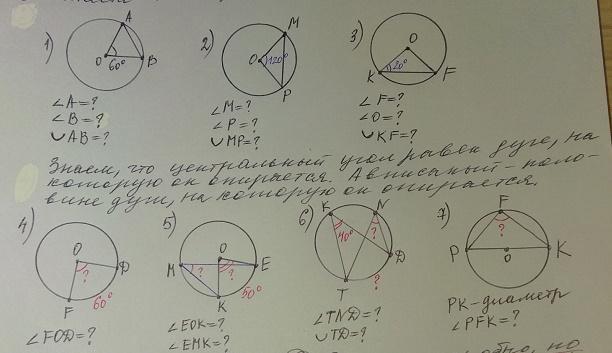 1) A O 60° B
∠A=?
∠B=?
∪AB=?
2) M O 120° P
∠M=?
∠P=?
∪MP=?
3) O K 20° F
∠F=?
∠O=?
∪KF=?
Знаем, что центральный угол равен дуге, на
которую он опирается. А вписаный - поло-
вине дуги, на которую он опирается.
4) O ? D F 60°
∠FOD=?
5) O M ? ? E K 50°
∠EOK=?
∠EMK=?
6) K N 40° ? D T ?
∠TND=?
∪TD=?
7) F ? P O K
PK-диаметр
∠PFK=?